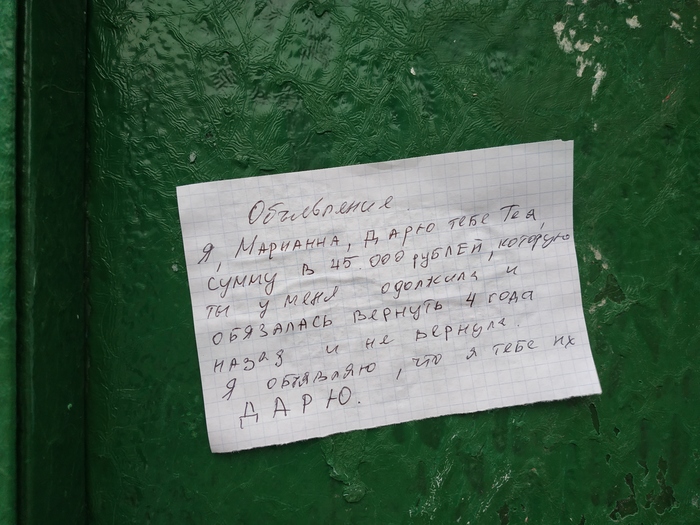 Объявление.
Я, Марианна, дарю тебе Теа,
сумму в 45.000 рублей, которую
ты у меня одолжила и
обязалась вернуть 4 года
назад и не вернула.
Я объявляю, что я тебе их
ДАРЮ.